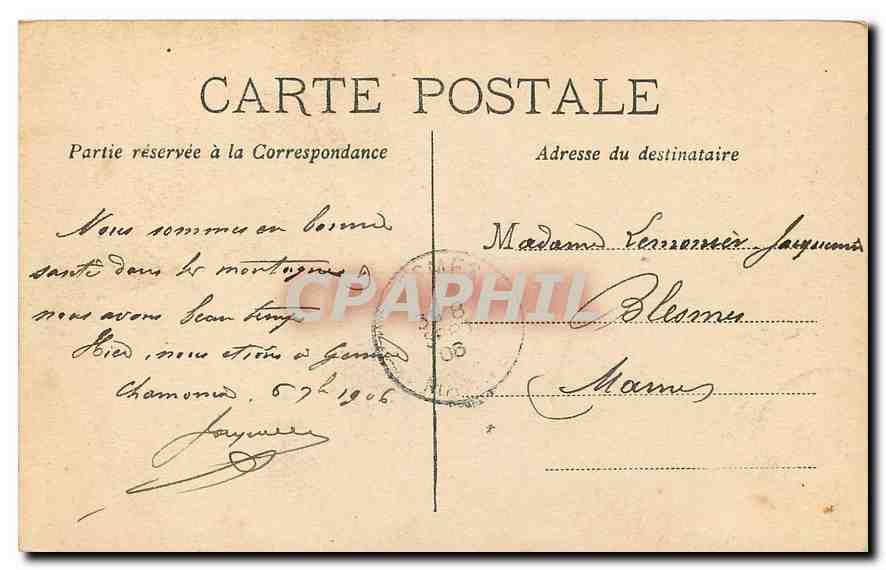 CARTE POSTALE
Partie réservée à la Correspondance
Nous sommes en bonne
santé dans les montagnes
nous avons beau temps
Hier, nous étions à Genève
Chamonix, 6 7h 1906
Adresse du destinataire
Madame Lemonier
Blesmes
(Marne)
8
06
CPAPHIL